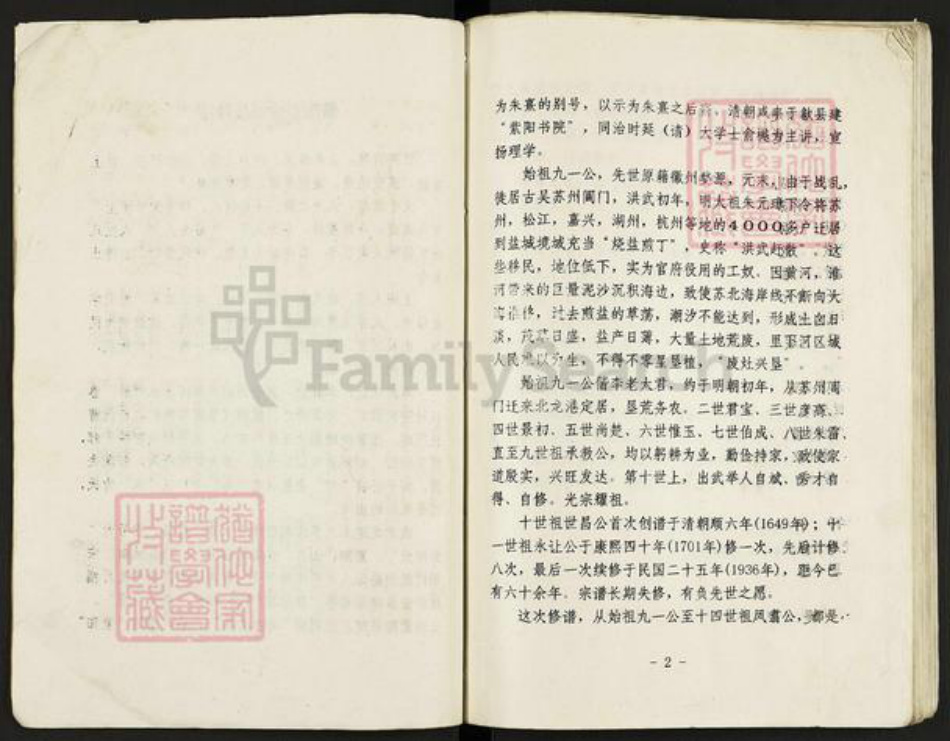 为朱熹的别号，以示为朱熹之后裔、清朝咸来于歙县建
“紫阳书院”，同治时延（请）大学士俞樾为主讲，宣
扬理学。
始祖九一公，先世原籍徽州婺源，元末，由于战乱，
徙居古吴苏州阊门，洪武初年，明太祖朱元璋下令将苏
州，松江，嘉兴，湖州，杭州等地的4000多户迁居
到盐城境城充当“烧盐煎丁”，史称“洪武赶散”。这
些移民，地位低下，实为官府役用的工奴。因黄河，淮
河带来的巨量泥沙沉积海边，致使苏北海岸线不断向大
海推移，过去煎盐的草荡，潮汐不能达到，形成土卤日
淡，茂草日盛，盐产日薄，大量土地荒废，里下河区域
人民难以为生，不得不零星垦植，“废灶兴垦”。
始祖九一公偕李老太君，约于明朝初年，从苏州阊
门迁来北龙港定居，垦荒务农、二世君宝、三世彦高、
四世景初、五世尚楚、六世惟玉、七世伯成、八世朱雷、
直至九世祖承教公，均以躬耕为业，勤俭持家，致使家
道殷实，兴旺发达。第十世上，出武举人自斌、秀才自
得、自修。光宗耀祖。
十世祖世昌公首次创谱于清朝顺六年(1649年)；十
一世祖永让公于康熙四十年(1701年)修一次，先后计修
八次，最后一次续修于民国二十五年(1936年)，距今已
有六十余年。宗谱长期失修，有负先世之愿。
这次修谱，从始祖九一公至十四世祖凤翥公，都是
-2-
FamilySearch